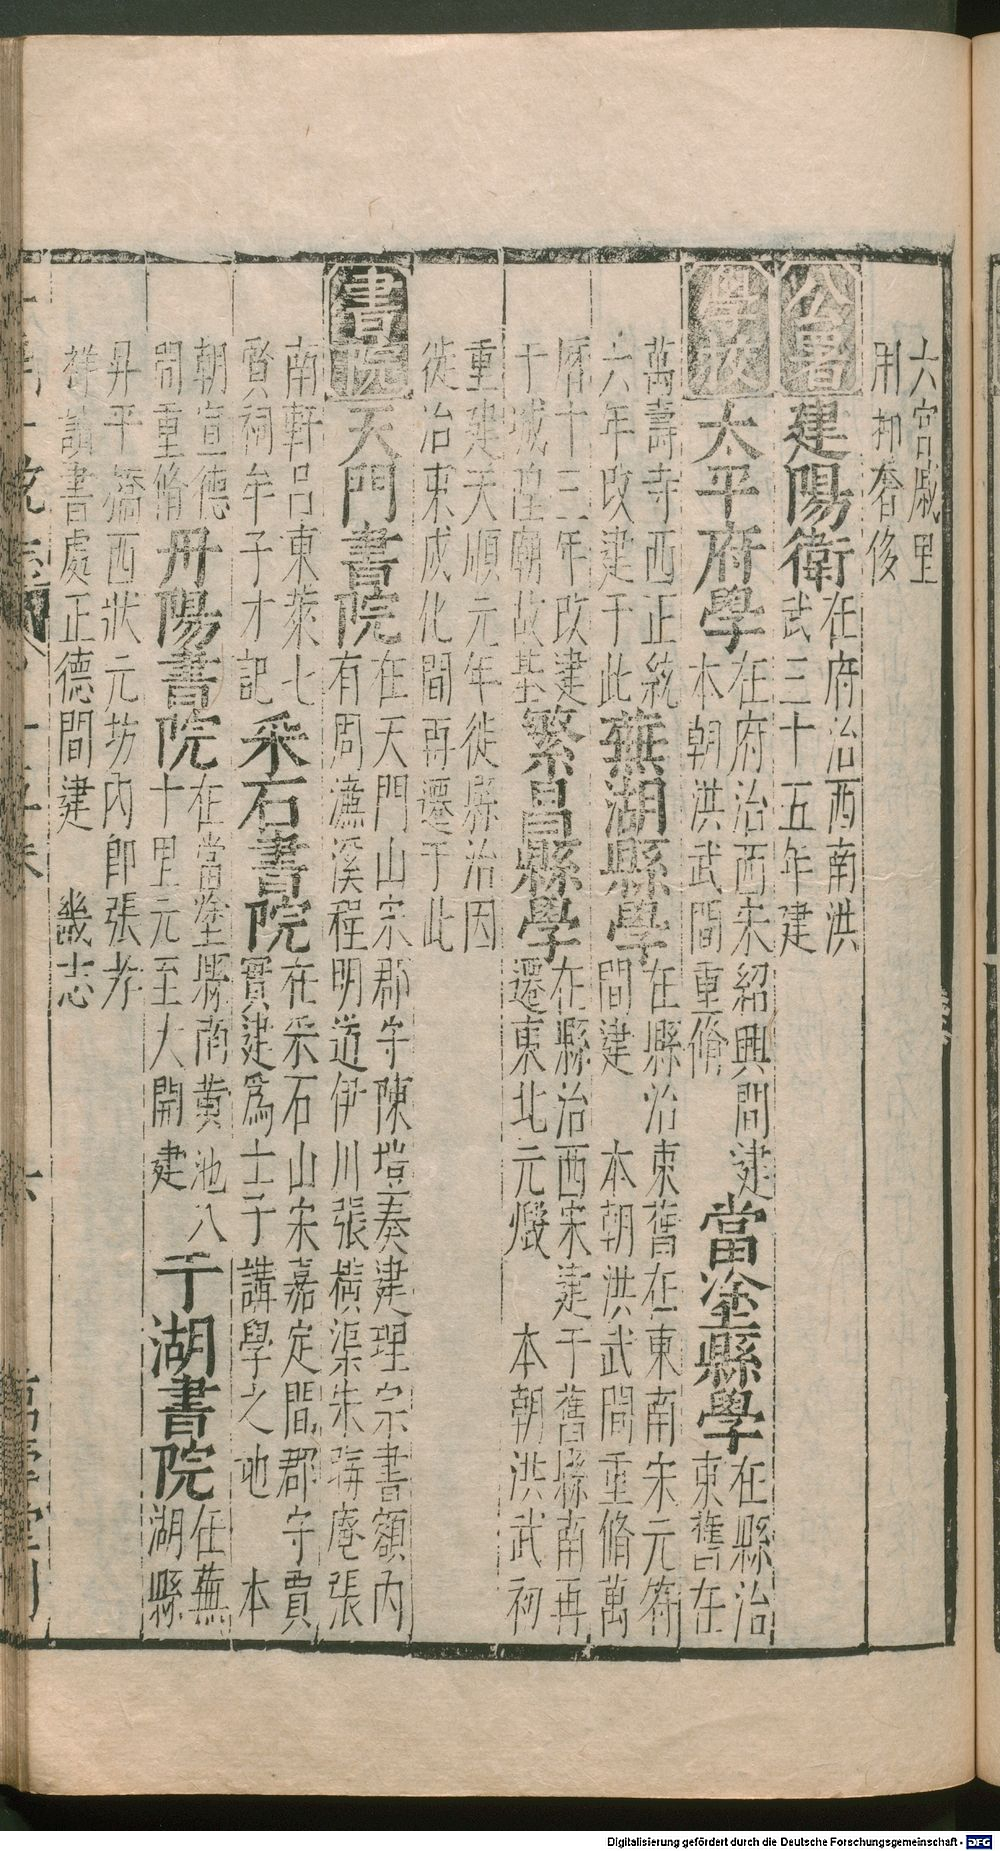 六宮戚里
用抑奢侈
公署建陽衛在府治西南洪
武三十五年建
學校太平府學在府治西宋紹興間建
本朝洪武間重脩當塗縣學在縣治
東舊在
萬壽寺西正統
六年改建于此蕪湖縣學在縣治東舊在東南宋元符
間建 本朝洪武間重脩萬
曆十三年改建
于城隍廟故基繁昌縣學在縣治西宋建于舊縣南再
遷東北元燬 本朝洪武初
重建天順元年徙縣治因
徙治東成化間再遷于此
書院天門書院在天門山宋郡守陳塏奏建理宗書額内
有周濂溪程明道伊川張橫渠朱晦庵張
南軒吕東萊七
賢祠牟子才記采石書院在采石山宋嘉定間郡守賈
實建爲士子講學之地 本
朝宣德
間重脩丹陽書院在當塗縣南黄池八
十里元至大開建于湖書院在蕪
湖縣
昇平橋西狀元坊内即張孝
祥讀書處正德間建 幾志
六
萬壽堂刊
Digitalisierung gefördert durch die Deutsche Forschungsgemeinschaft - DFG